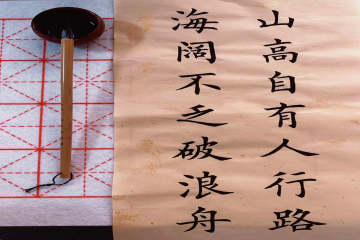 山高自有人行路
海阔不乏破浪舟